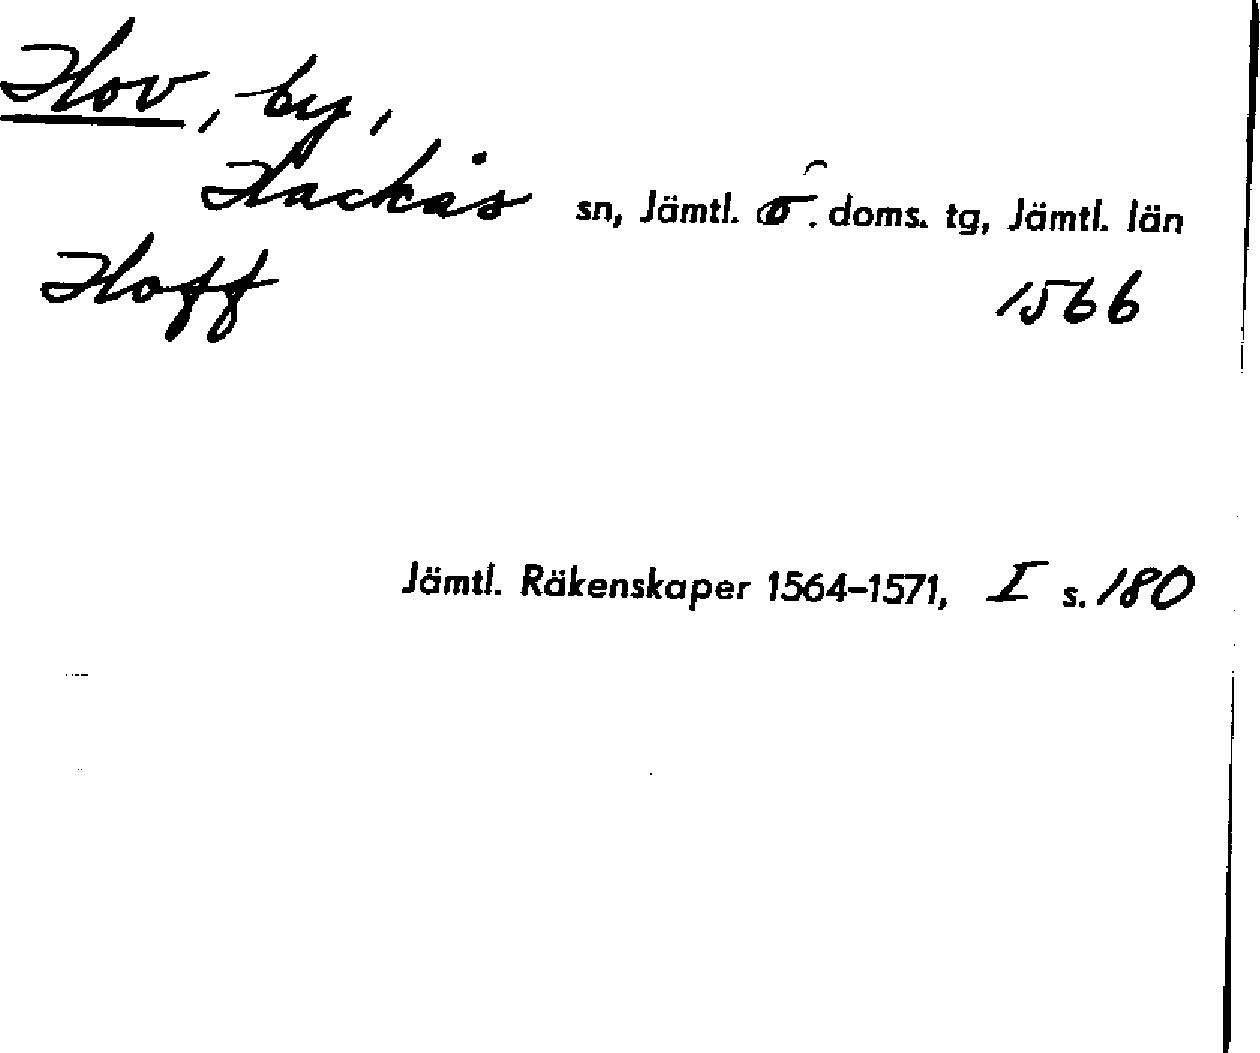 Hov, by,
Hackås sn, Jämtl. ö. doms. tg, Jämtl. län
Hoff 1566
Jämtl. Räkenskaper 1564–1571, I s. 180